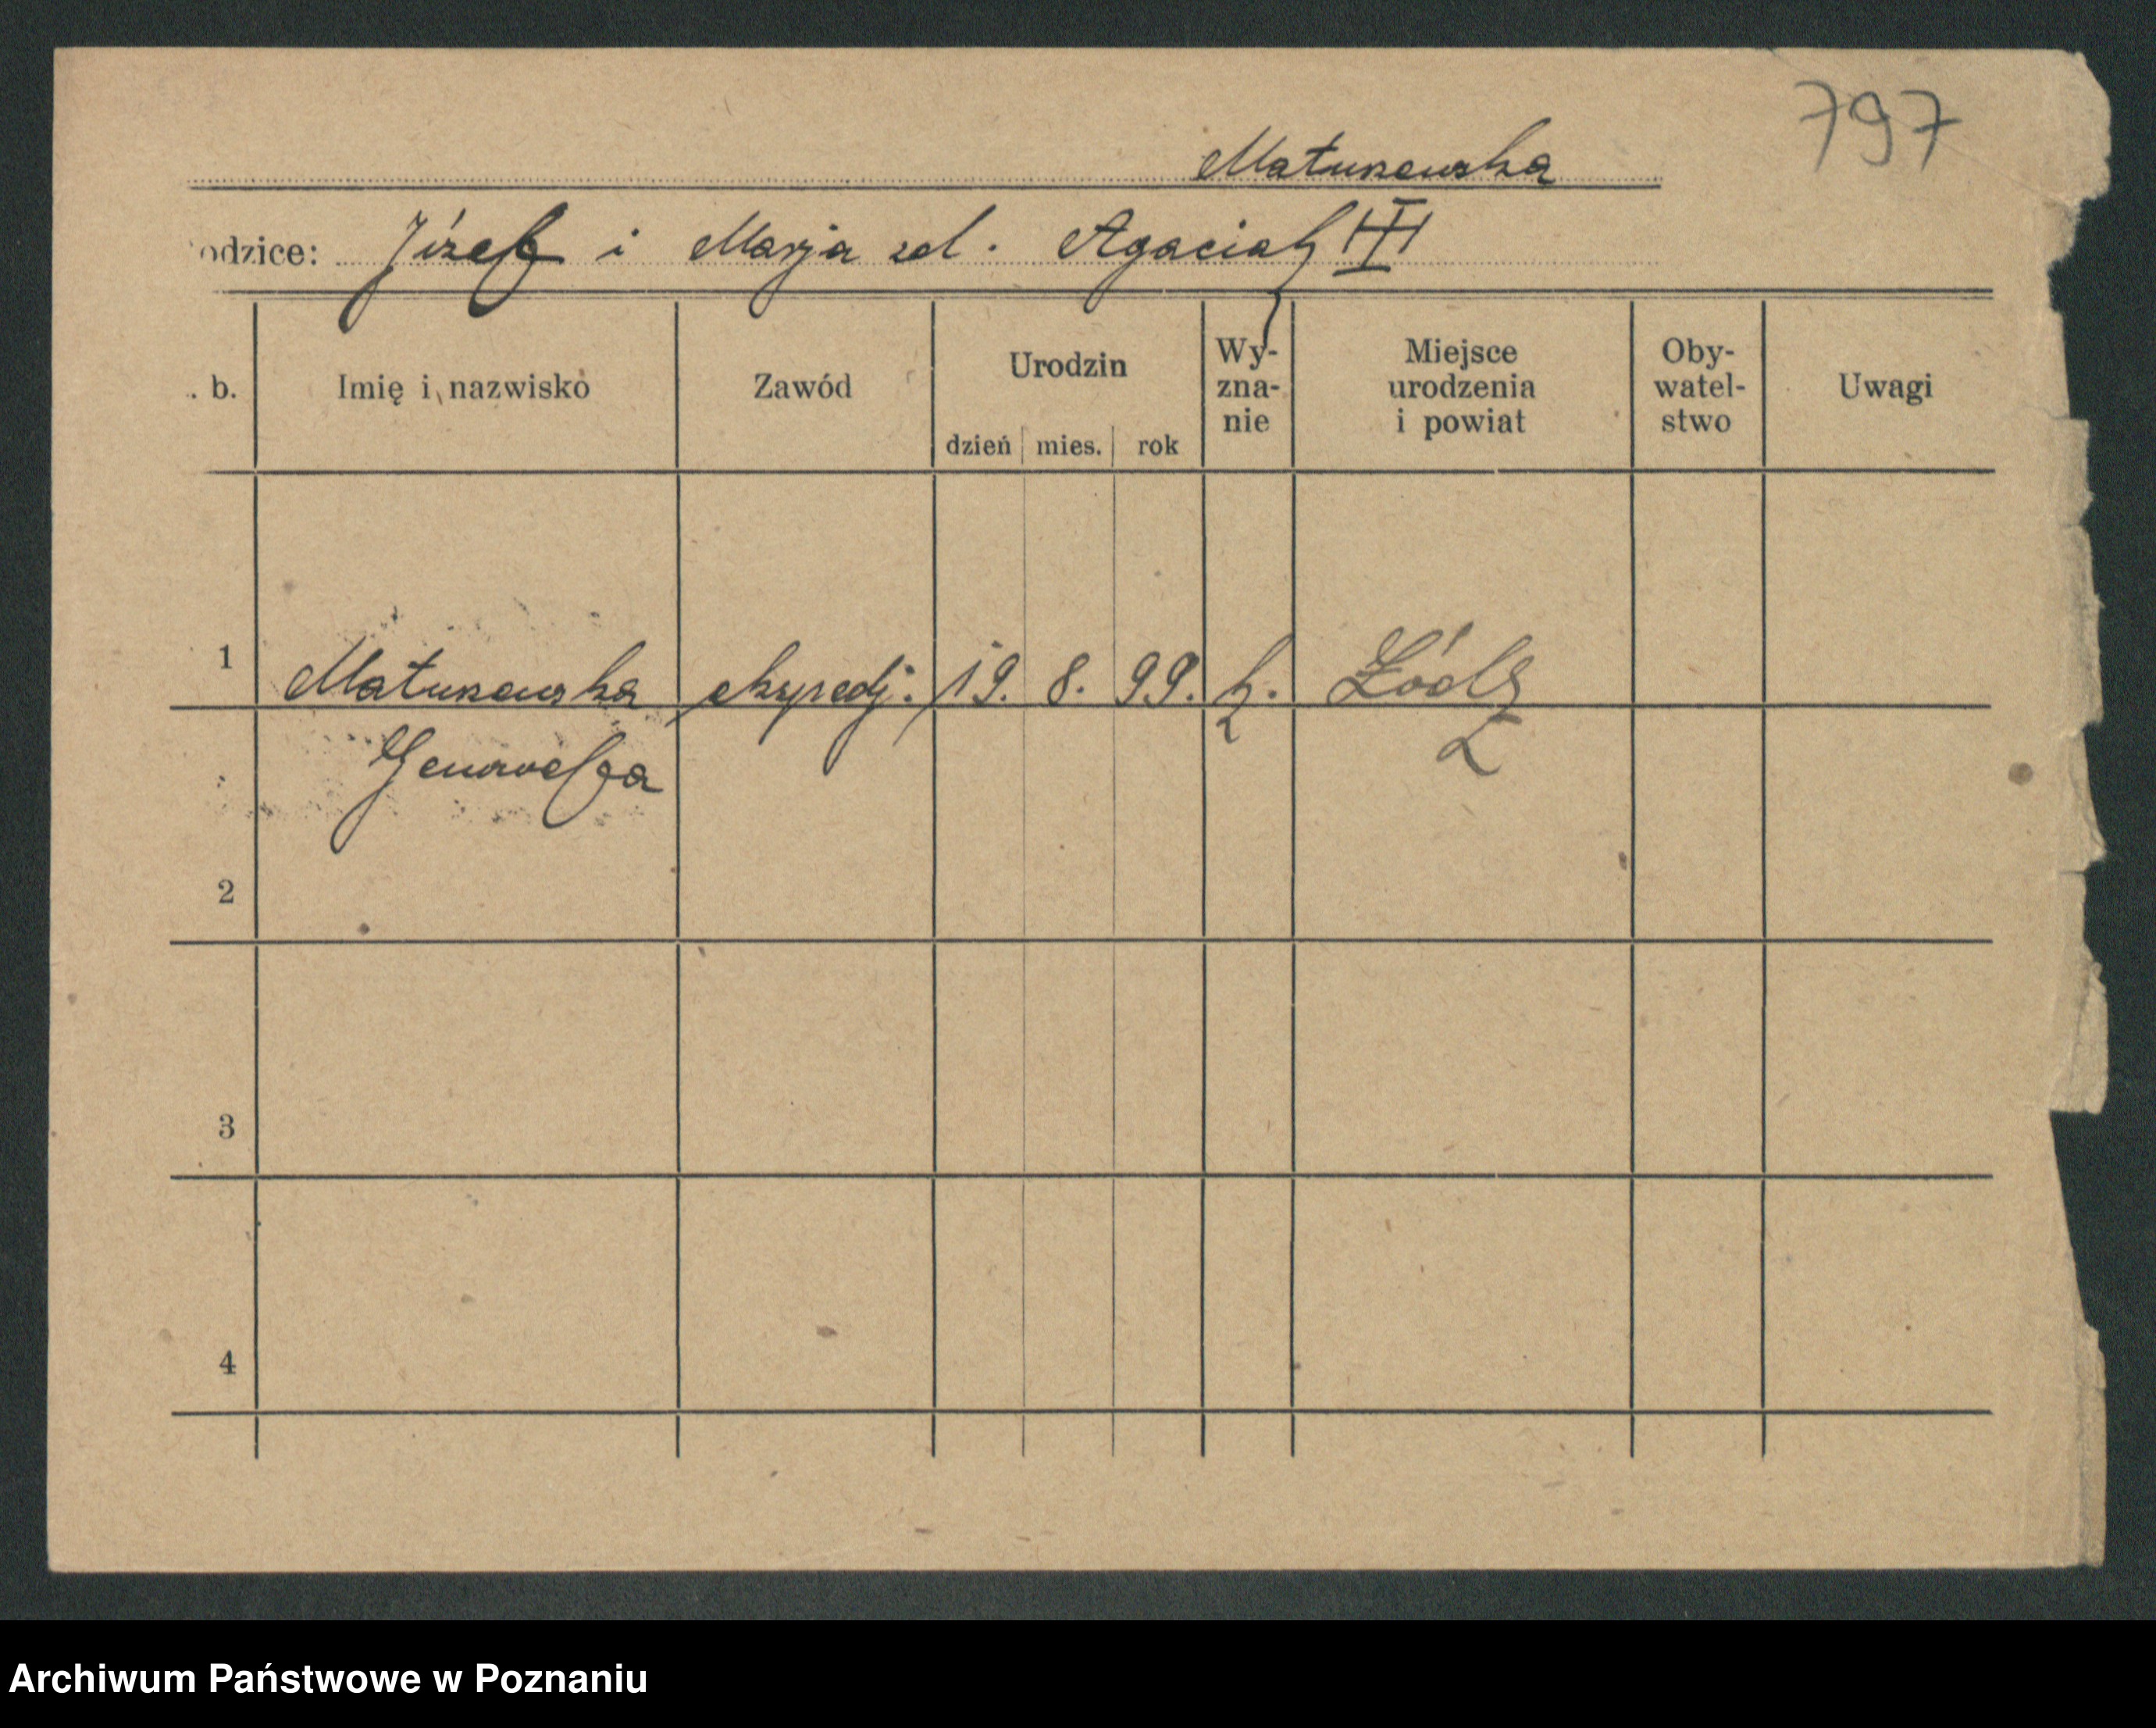 797
Matuszewska
odzice: Józef i Marja zd. Agaciak III
. b.
Imię i nazwisko
Zawód
Urodzin
dzień mies. rok
Wy-
zna-
nie
Miejsce
urodzenia
i powiat
Oby-
watel-
stwo
Uwagi
1 Matuszewska ekspedj. 19. 8. 99. k. Łódź
Genowefa
2
3
4
Archiwum Państwowe w Poznaniu